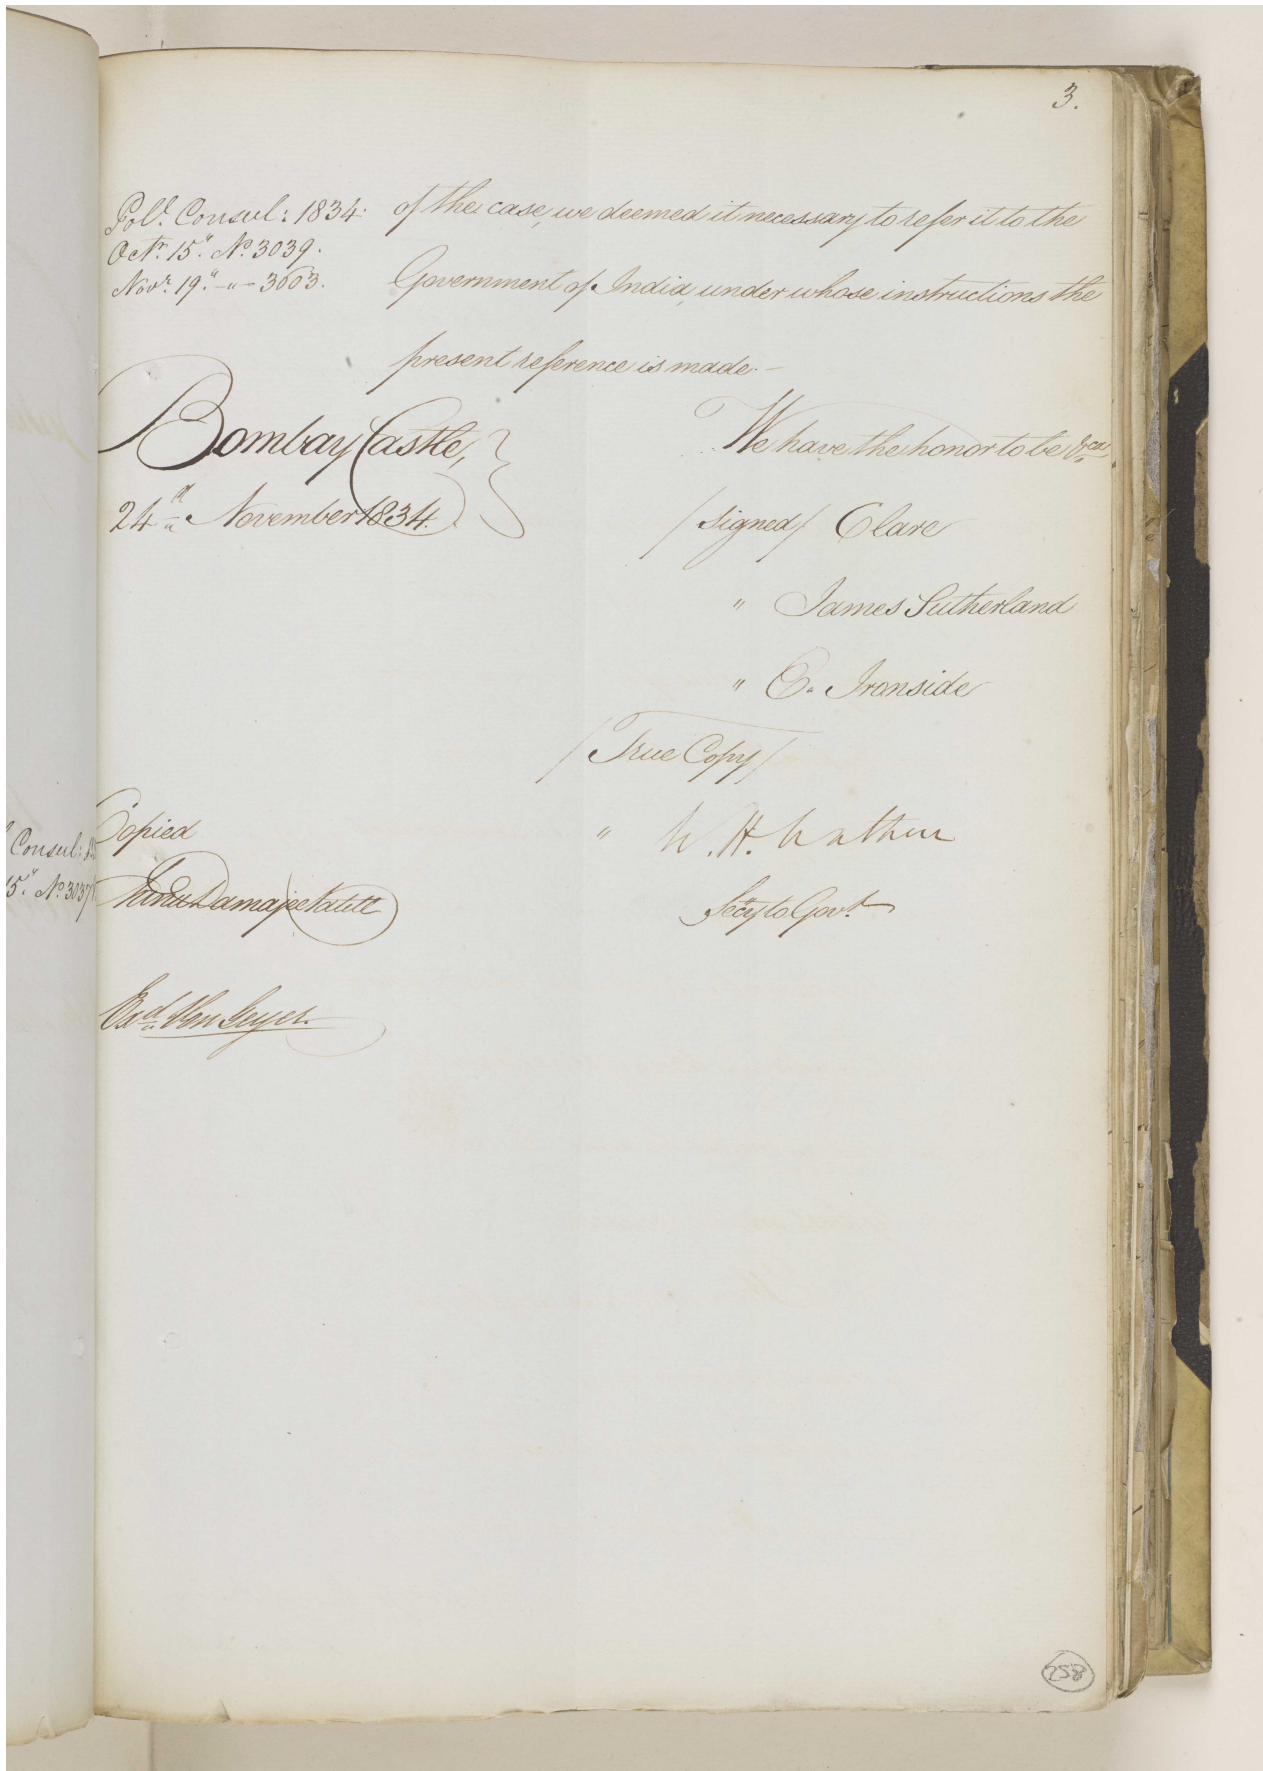 3.
Pol.l Consul: 1834:
Octr. 15." No. 3039.
Novr. 19." -"- 3603.
of the case, we deemed it necessary to refer it to the
Government of India, under whose instructions the
present reference is made.-
Bombay Castle,
24th November 1834.
We have the honor to be &ca.
/signed/ Clare
" James Sutherland
" E. Ironside
/True Copy/
Copied
" W. H. Wathen
Secy to Govt.
Exd. Van Geyer.
Consul:
15." No. 3037
258